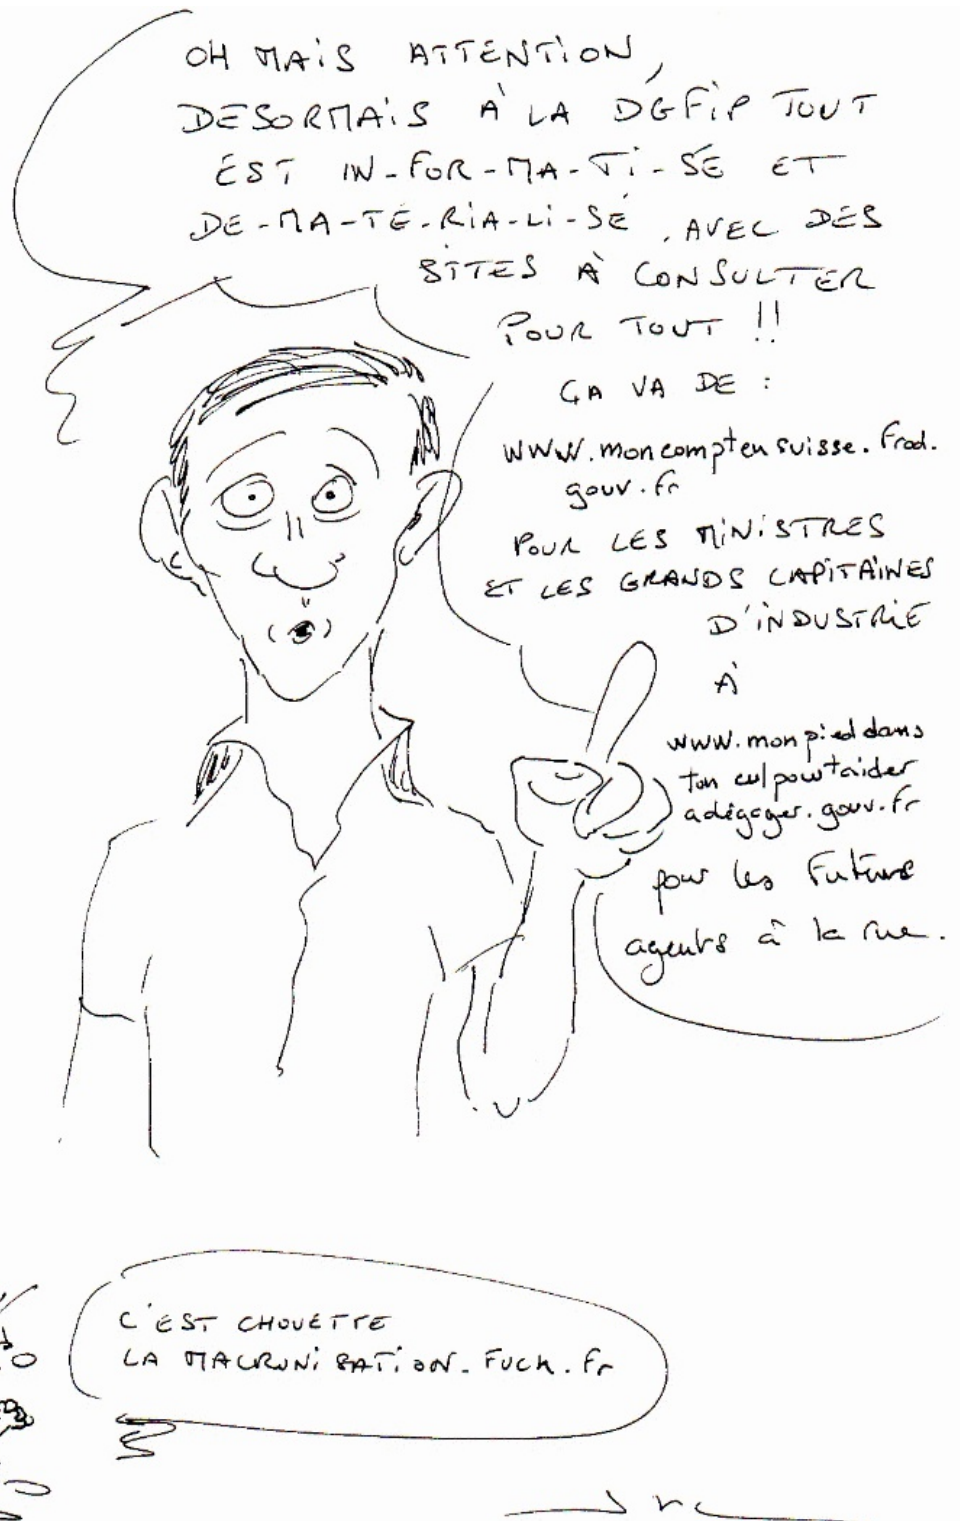 OH MAiS ATTENTiON,
DESORMAiS À LA DGFiP TOUT
EST IN-FOR-MA-Ti-SÉ ET
DE-MA-TÉ-RiA-Li-SÉ, AVEC DES
SITES À CONSULTER
POUR TOUT !!
ÇA VA DE :
www.moncompteusuisse.frod.
gouv.fr
POUR LES MiNiSTRES
ET LES GRANDS CAPiTAiNES
D'iNDUSTRiE
À
www.monpieddans
ton culpourtaider
adégager.gouv.fr
pour les futurs
agents à la rue.
C'EST CHOUETTE
LA MACRONiSATiON.FUCK.fr